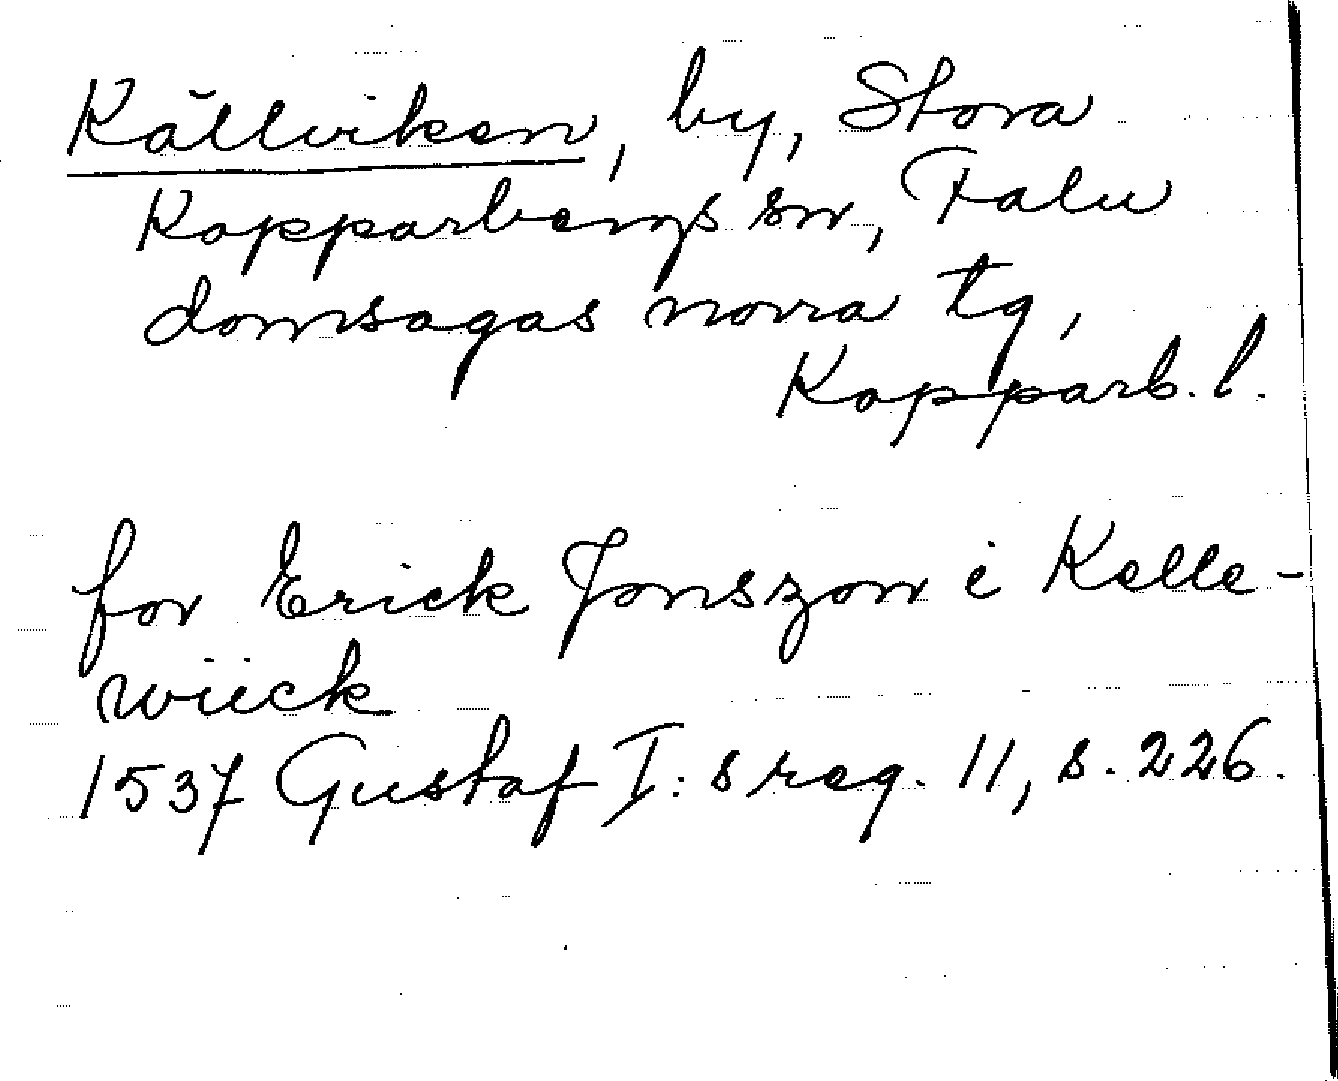 Källviken, by, Stora
Kopparbergs sn, Falu
domsagas norra tg,
Kopparb. l.
for Erick Jonszon i Kelle-
wiick
1537 Gustaf I:s reg. 11, s. 226.